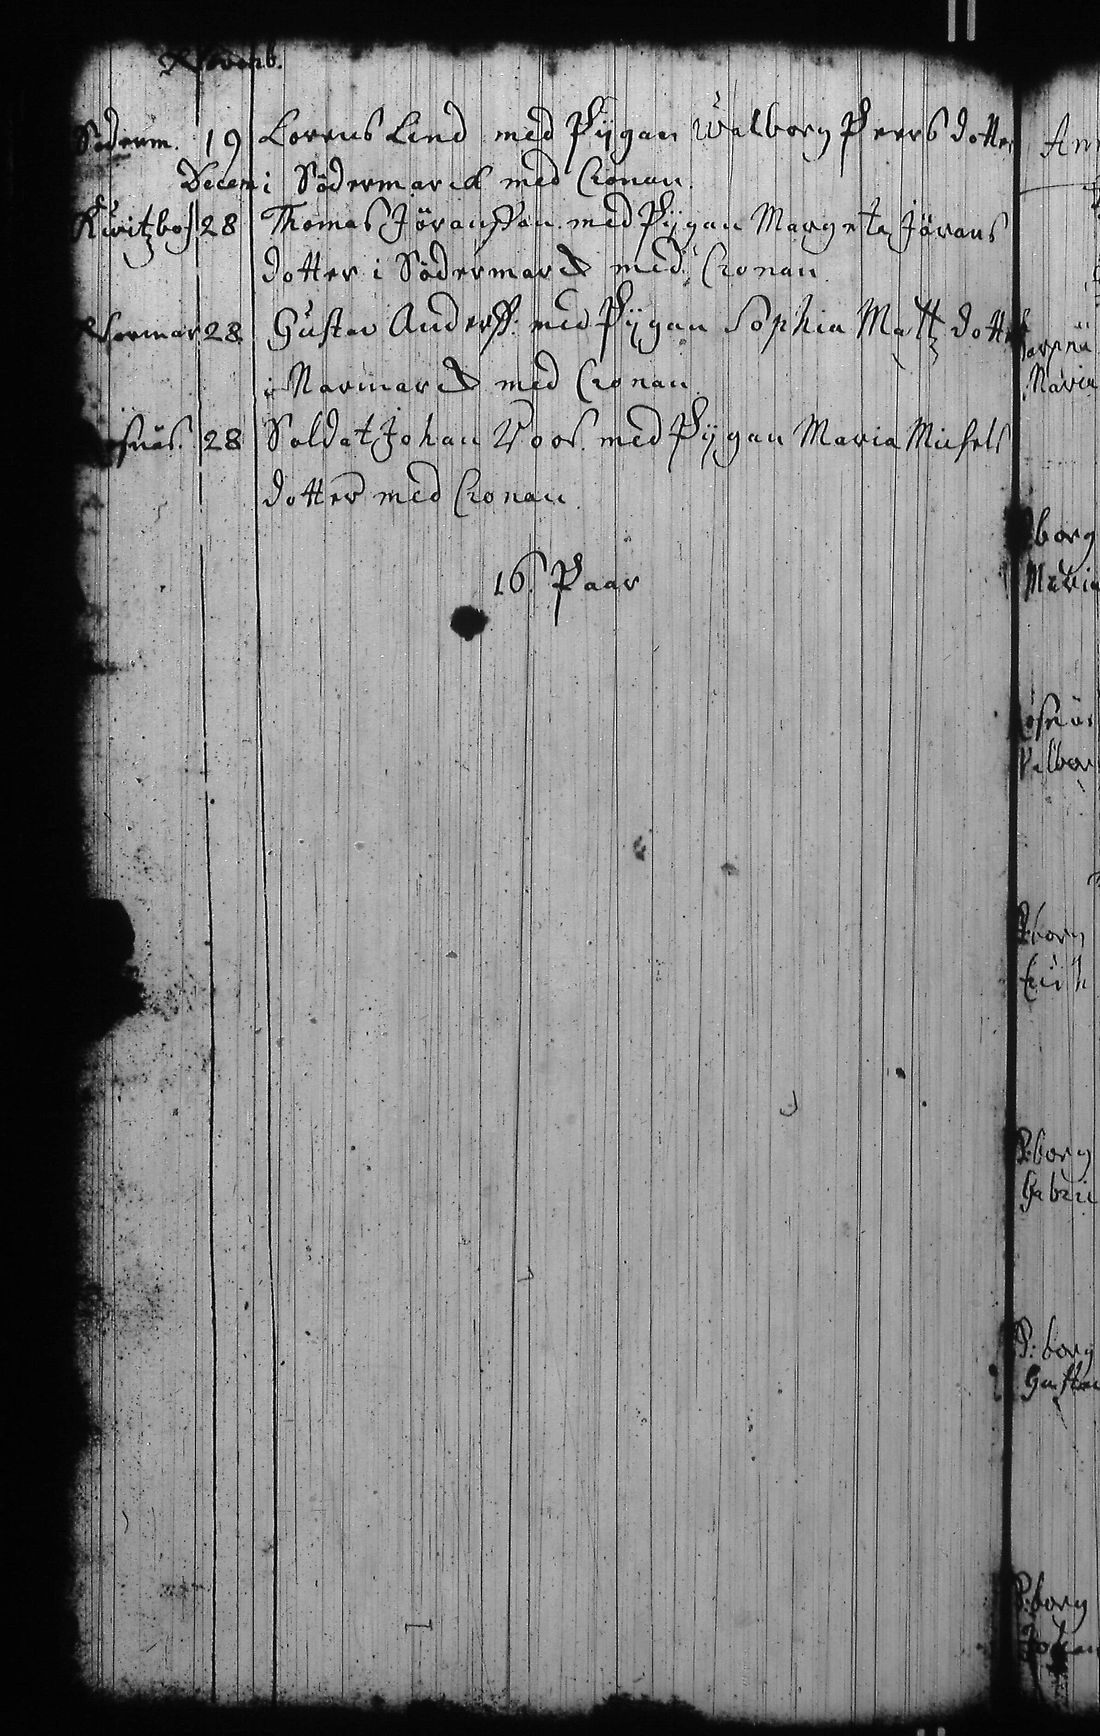 Novemb.
Söderm. 19 Lorens Lind med Pijgan Walborg Peers dotter
Decem i Södermarck med Cronan.
Kuitzbo 28 Thomas Jöransson med Pijgan Margeta Jörans
dotter i Södermarck med Cronan
Normar 28 Gustav Anderss: med Pijgan Sophia Mattz dotter
i Normarck med Cronan
snäs. 28 Soldat Johan Roos med Pijgan Maria Michels
dotter med Cronan
16. Paar
Maria
borg
Maria
borg
borg
Gabrie
P: borg
Gustav
borg